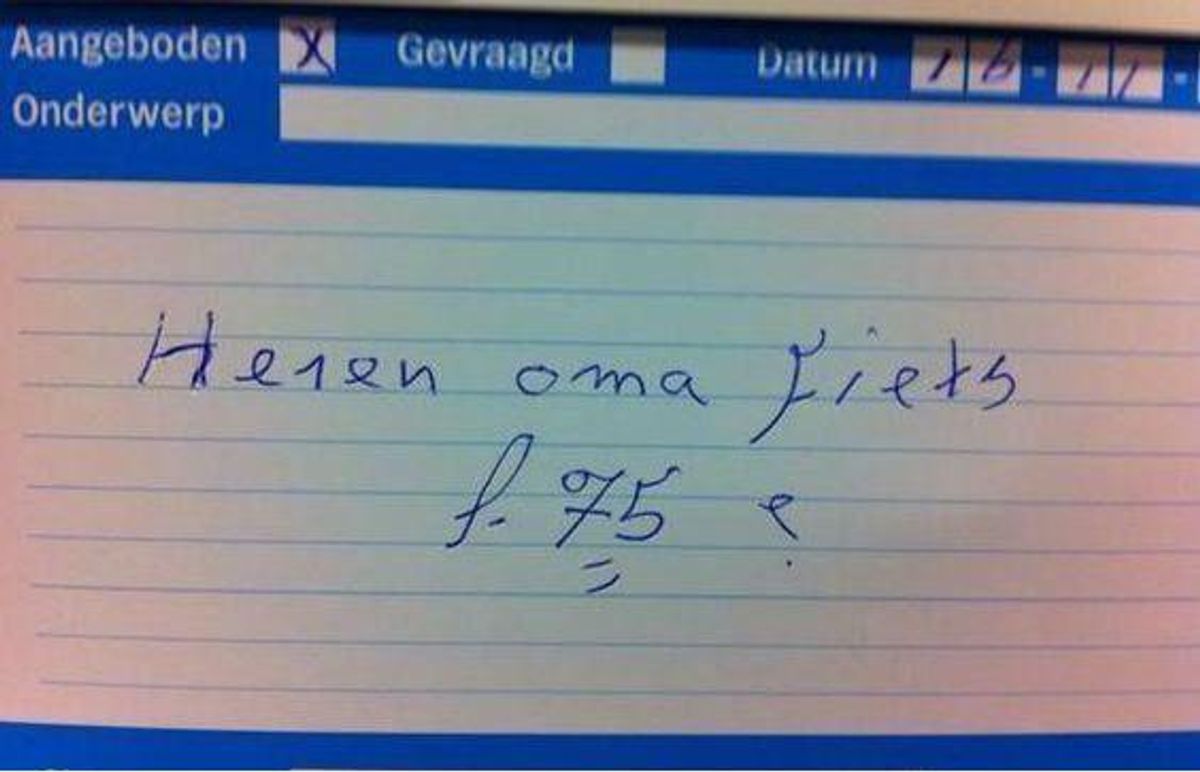 Aangeboden X Gevraagd Datum 16-11-
Onderwerp
Heren oma Fiets
f. 75 ?